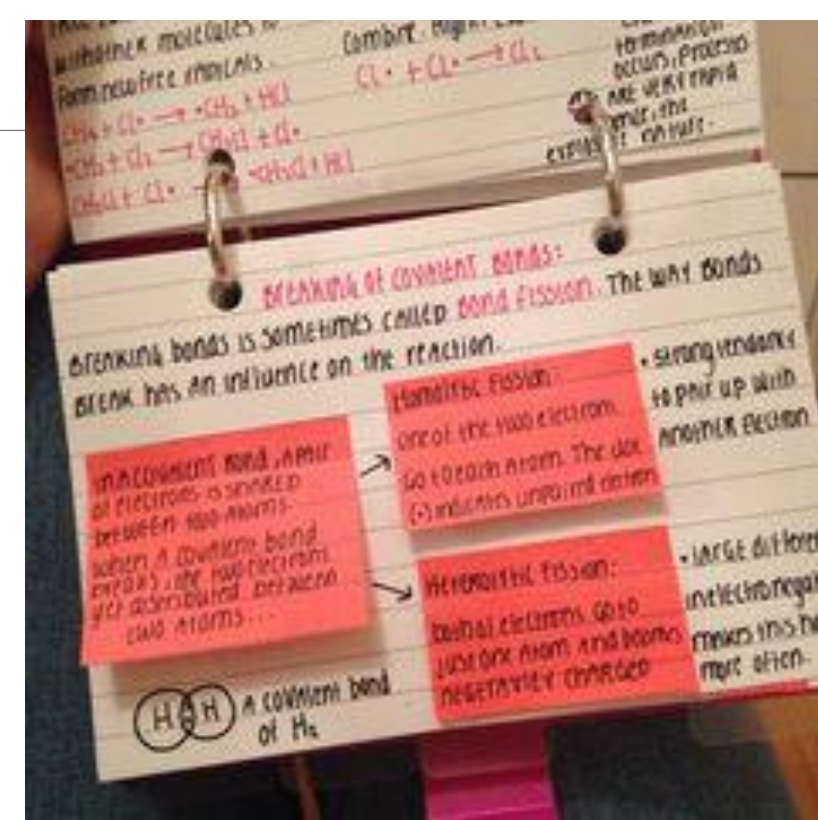 with other molecules to
form new free radicals.
CH4 + Cl• → •CH3 + HCl
•CH3 + Cl2 → CH3Cl + Cl•
CH3Cl + Cl• → •CH2Cl + HCl
combine.
Cl• + Cl• → Cl2
termination
occurs, processes
are very rapid
hence, the
explosive nature.
Breaking of covalent bonds:
Breaking bonds is sometimes called bond fission. The way bonds
break has an influence on the reaction.
In a covalent bond, a pair
of electrons is shared
between two atoms.
When a covalent bond
breaks, the two electrons
get distributed between
two atoms...
Homolytic fission:
one of the two electrons
go to each atom. The dot
(•) indicates unpaired electron
• strong tendancy
to pair up with
another electron
Heterolytic fission:
both electrons go to
just one atom and
negatively charged
• large
in
makes this
more often.
H H
A covalent bond
of H2